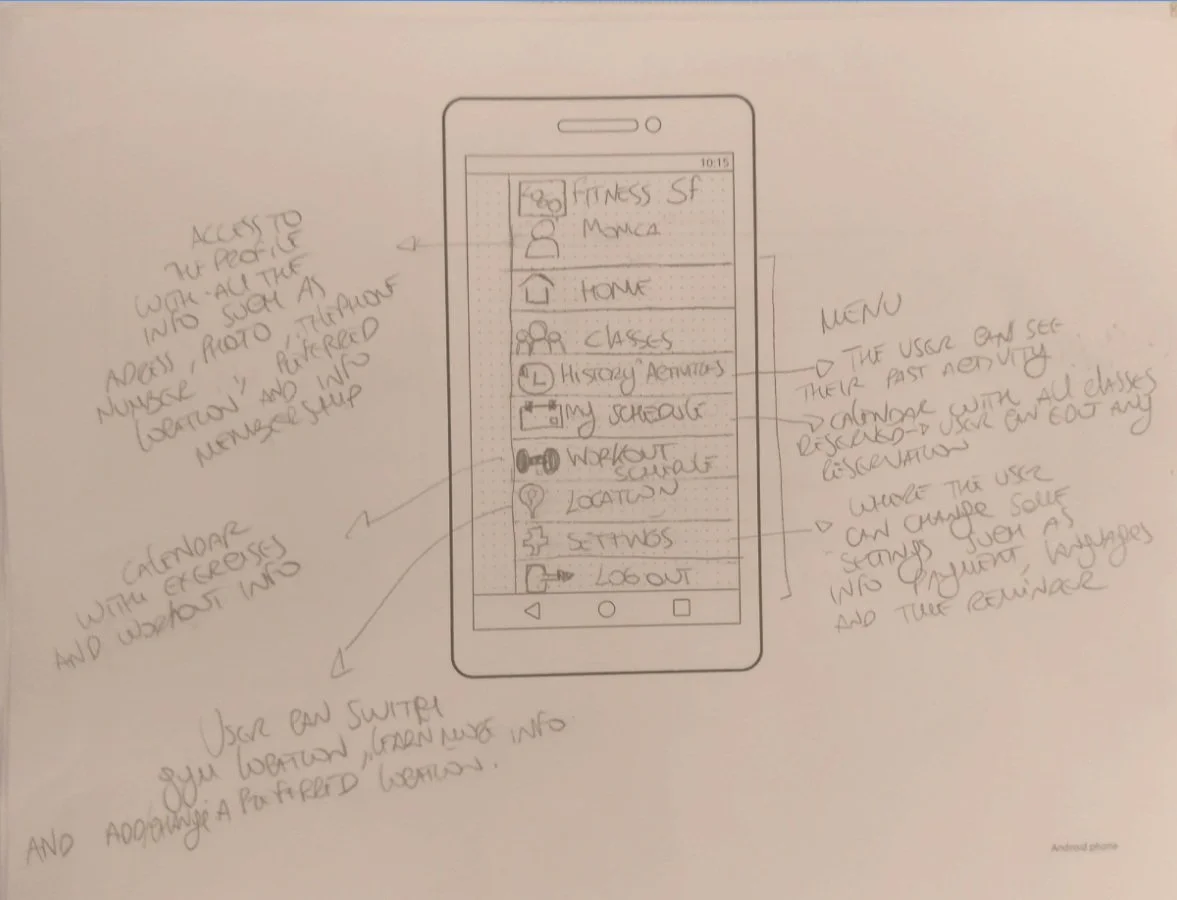 10:15
FITNESS SF
MONICA
HOME
CLASSES
HISTORY ACTIVITIES
MY SCHEDULE
WORKOUT
SCHEDULE
LOCATION
SETTINGS
LOG OUT
ACCESS TO
THE PROFILE
WITH ALL THE
INFO SUCH AS
ADRESS, PHOTO, THEPHONE
NUMBER, PREFERRED
LOCATION" AND INFO
MEMBERSHIP
CALENDAR
WITH EXERCISES
AND WORKOUT INFO
USER CAN SWITCH
gym LOCATION, LEARN MORE INFO
AND ADD/CHANGE A PREFERRED LOCATION.
MENU
THE USER CAN SEE
THEIR PAST ACTIVITY
CALENDAR WITH ALL CLASSES
RESERVED → USER CAN EDIT ANY
RESERVATION
WHERE THE USER
CAN CHANGE SOME
SETTINGS SUCH AS
INFO PAYMENT, LANGUAGES
AND TIME REMINDER
Android phone